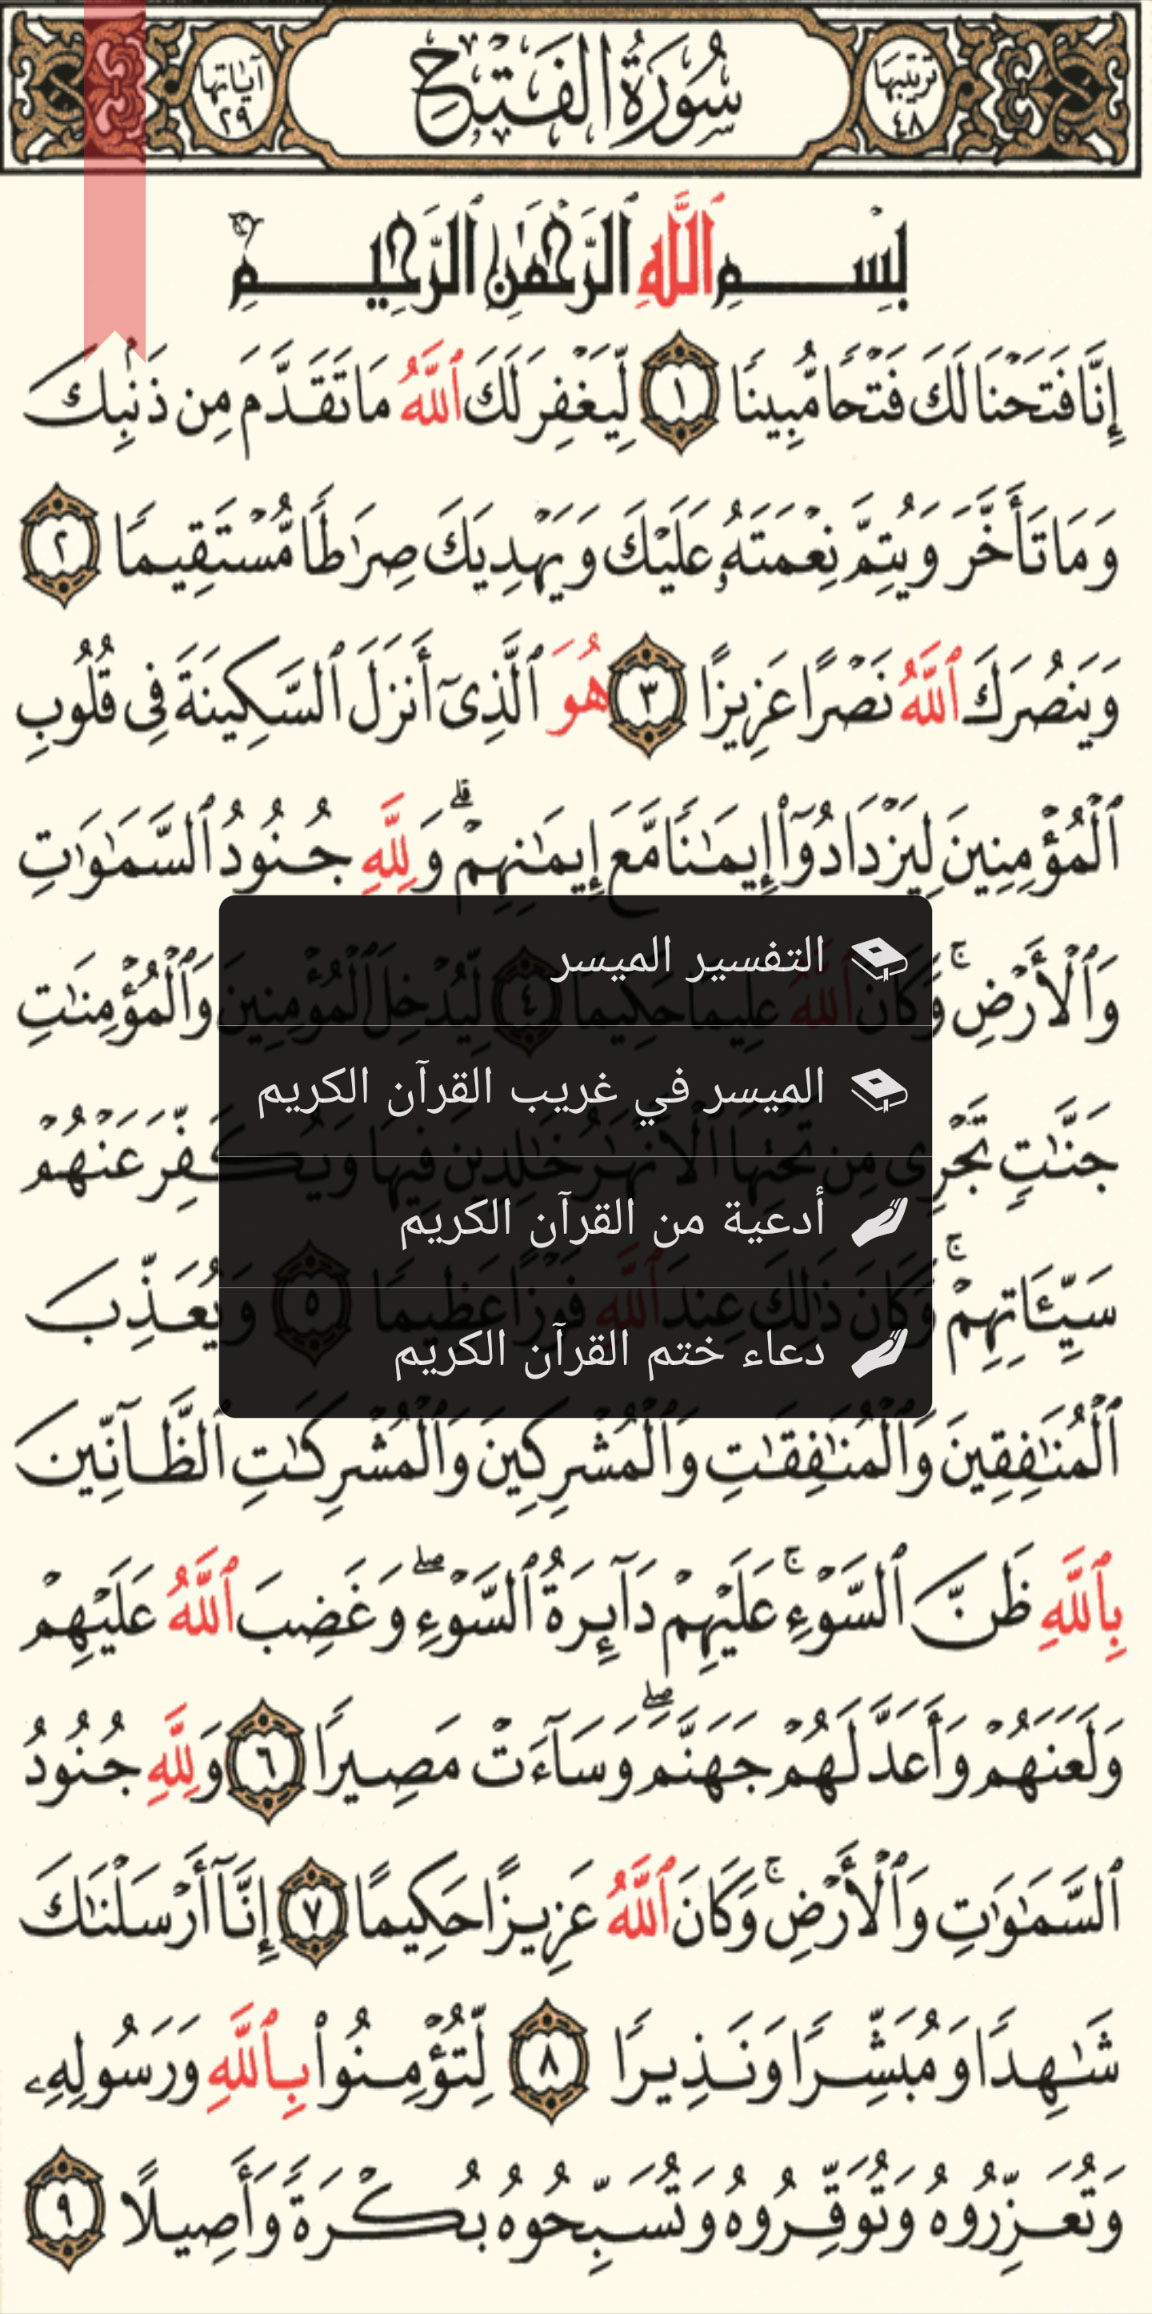 ترتيبها ٤٨
سُورَةُ الفَتْحِ
آياتها ٢٩
بِسْمِ ٱللَّهِ ٱلرَّحْمَٰنِ ٱلرَّحِيمِ
إِنَّا فَتَحْنَا لَكَ فَتْحًا مُّبِينًا ١ لِّيَغْفِرَ لَكَ ٱللَّهُ مَا تَقَدَّمَ مِن ذَنۢبِكَ
وَمَا تَأَخَّرَ وَيُتِمَّ نِعْمَتَهُۥ عَلَيْكَ وَيَهْدِيَكَ صِرَٰطًا مُّسْتَقِيمًا ٢
وَيَنصُرَكَ ٱللَّهُ نَصْرًا عَزِيزًا ٣ هُوَ ٱلَّذِىٓ أَنزَلَ ٱلسَّكِينَةَ فِى قُلُوبِ
ٱلْمُؤْمِنِينَ لِيَزْدَادُوٓا۟ إِيمَٰنًا مَّعَ إِيمَٰنِهِمْ ۗ وَلِلَّهِ جُنُودُ ٱلسَّمَٰوَٰتِ
وَٱلْأَرْضِ ۚ وَكَانَ ٱللَّهُ عَلِيمًا حَكِيمًا ٤ لِّيُدْخِلَ ٱلْمُؤْمِنِينَ وَٱلْمُؤْمِنَٰتِ
التفسير الميسر
الميسر في غريب القرآن الكريم
جَنَّٰتٍ تَجْرِى مِن تَحْتِهَا ٱلْأَنْهَٰرُ خَٰلِدِينَ فِيهَا وَيُكَفِّرَ عَنْهُمْ
أدعية من القرآن الكريم
سَيِّـَٔاتِهِمْ ۚ وَكَانَ ذَٰلِكَ عِندَ ٱللَّهِ فَوْزًا عَظِيمًا ٥ وَيُعَذِّبَ
دعاء ختم القرآن الكريم
ٱلْمُنَٰفِقِينَ وَٱلْمُنَٰفِقَٰتِ وَٱلْمُشْرِكِينَ وَٱلْمُشْرِكَٰتِ ٱلظَّآنِّينَ
بِٱللَّهِ ظَنَّ ٱلسَّوْءِ ۚ عَلَيْهِمْ دَآئِرَةُ ٱلسَّوْءِ ۖ وَغَضِبَ ٱللَّهُ عَلَيْهِمْ
وَلَعَنَهُمْ وَأَعَدَّ لَهُمْ جَهَنَّمَ ۖ وَسَآءَتْ مَصِيرًا ٦ وَلِلَّهِ جُنُودُ
ٱلسَّمَٰوَٰتِ وَٱلْأَرْضِ ۚ وَكَانَ ٱللَّهُ عَزِيزًا حَكِيمًا ٧ إِنَّآ أَرْسَلْنَٰكَ
شَٰهِدًا وَمُبَشِّرًا وَنَذِيرًا ٨ لِّتُؤْمِنُوا۟ بِٱللَّهِ وَرَسُولِهِۦ
وَتُعَزِّرُوهُ وَتُوَقِّرُوهُ وَتُسَبِّحُوهُ بُكْرَةً وَأَصِيلًا ٩